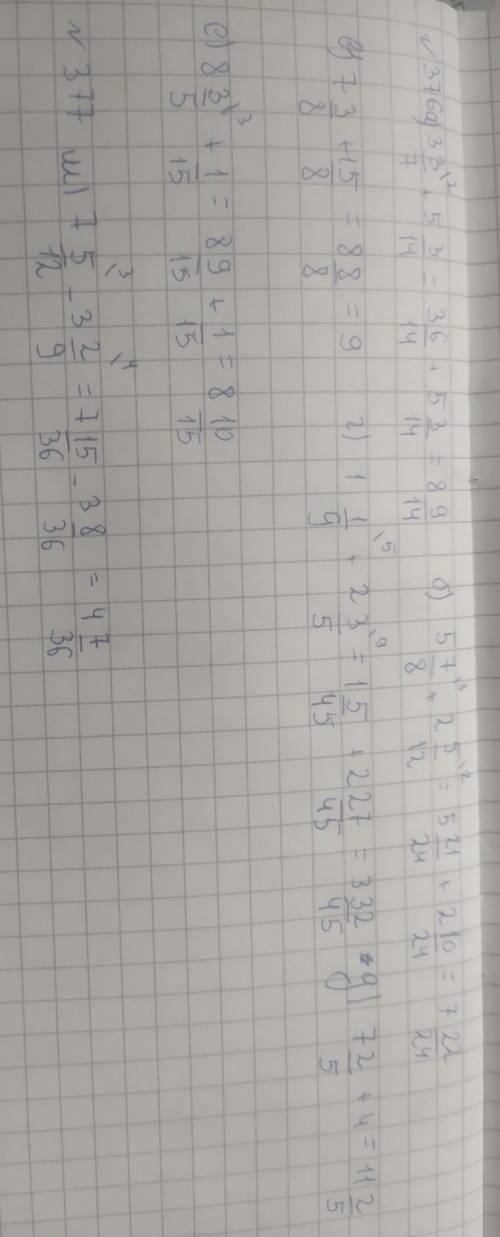 N376 а) 3 3/7 \2 + 5 3/14 = 3 6/14 + 5 3/14 = 8 9/14 б) 5 7/8 + 2 5/12 \2 = 5 21/24 + 2 10/24 = 7
в) 7 3/8 + 1 5/8 = 8 8/8 = 9 г) 1 1/9 \5 + 2 3/5 \9 = 1 5/45 + 2 27/45 = 3 32/45 д) 7 2/5 + 4 = 11 2/5
е) 8 3/5 \3 + 1/15 = 8 9/15 + 1/15 = 8 10/15
N 377 ш) 7 5/12 \3 - 3 2/9 \4 = 7 15/36 - 3 8/36 = 4 7/36